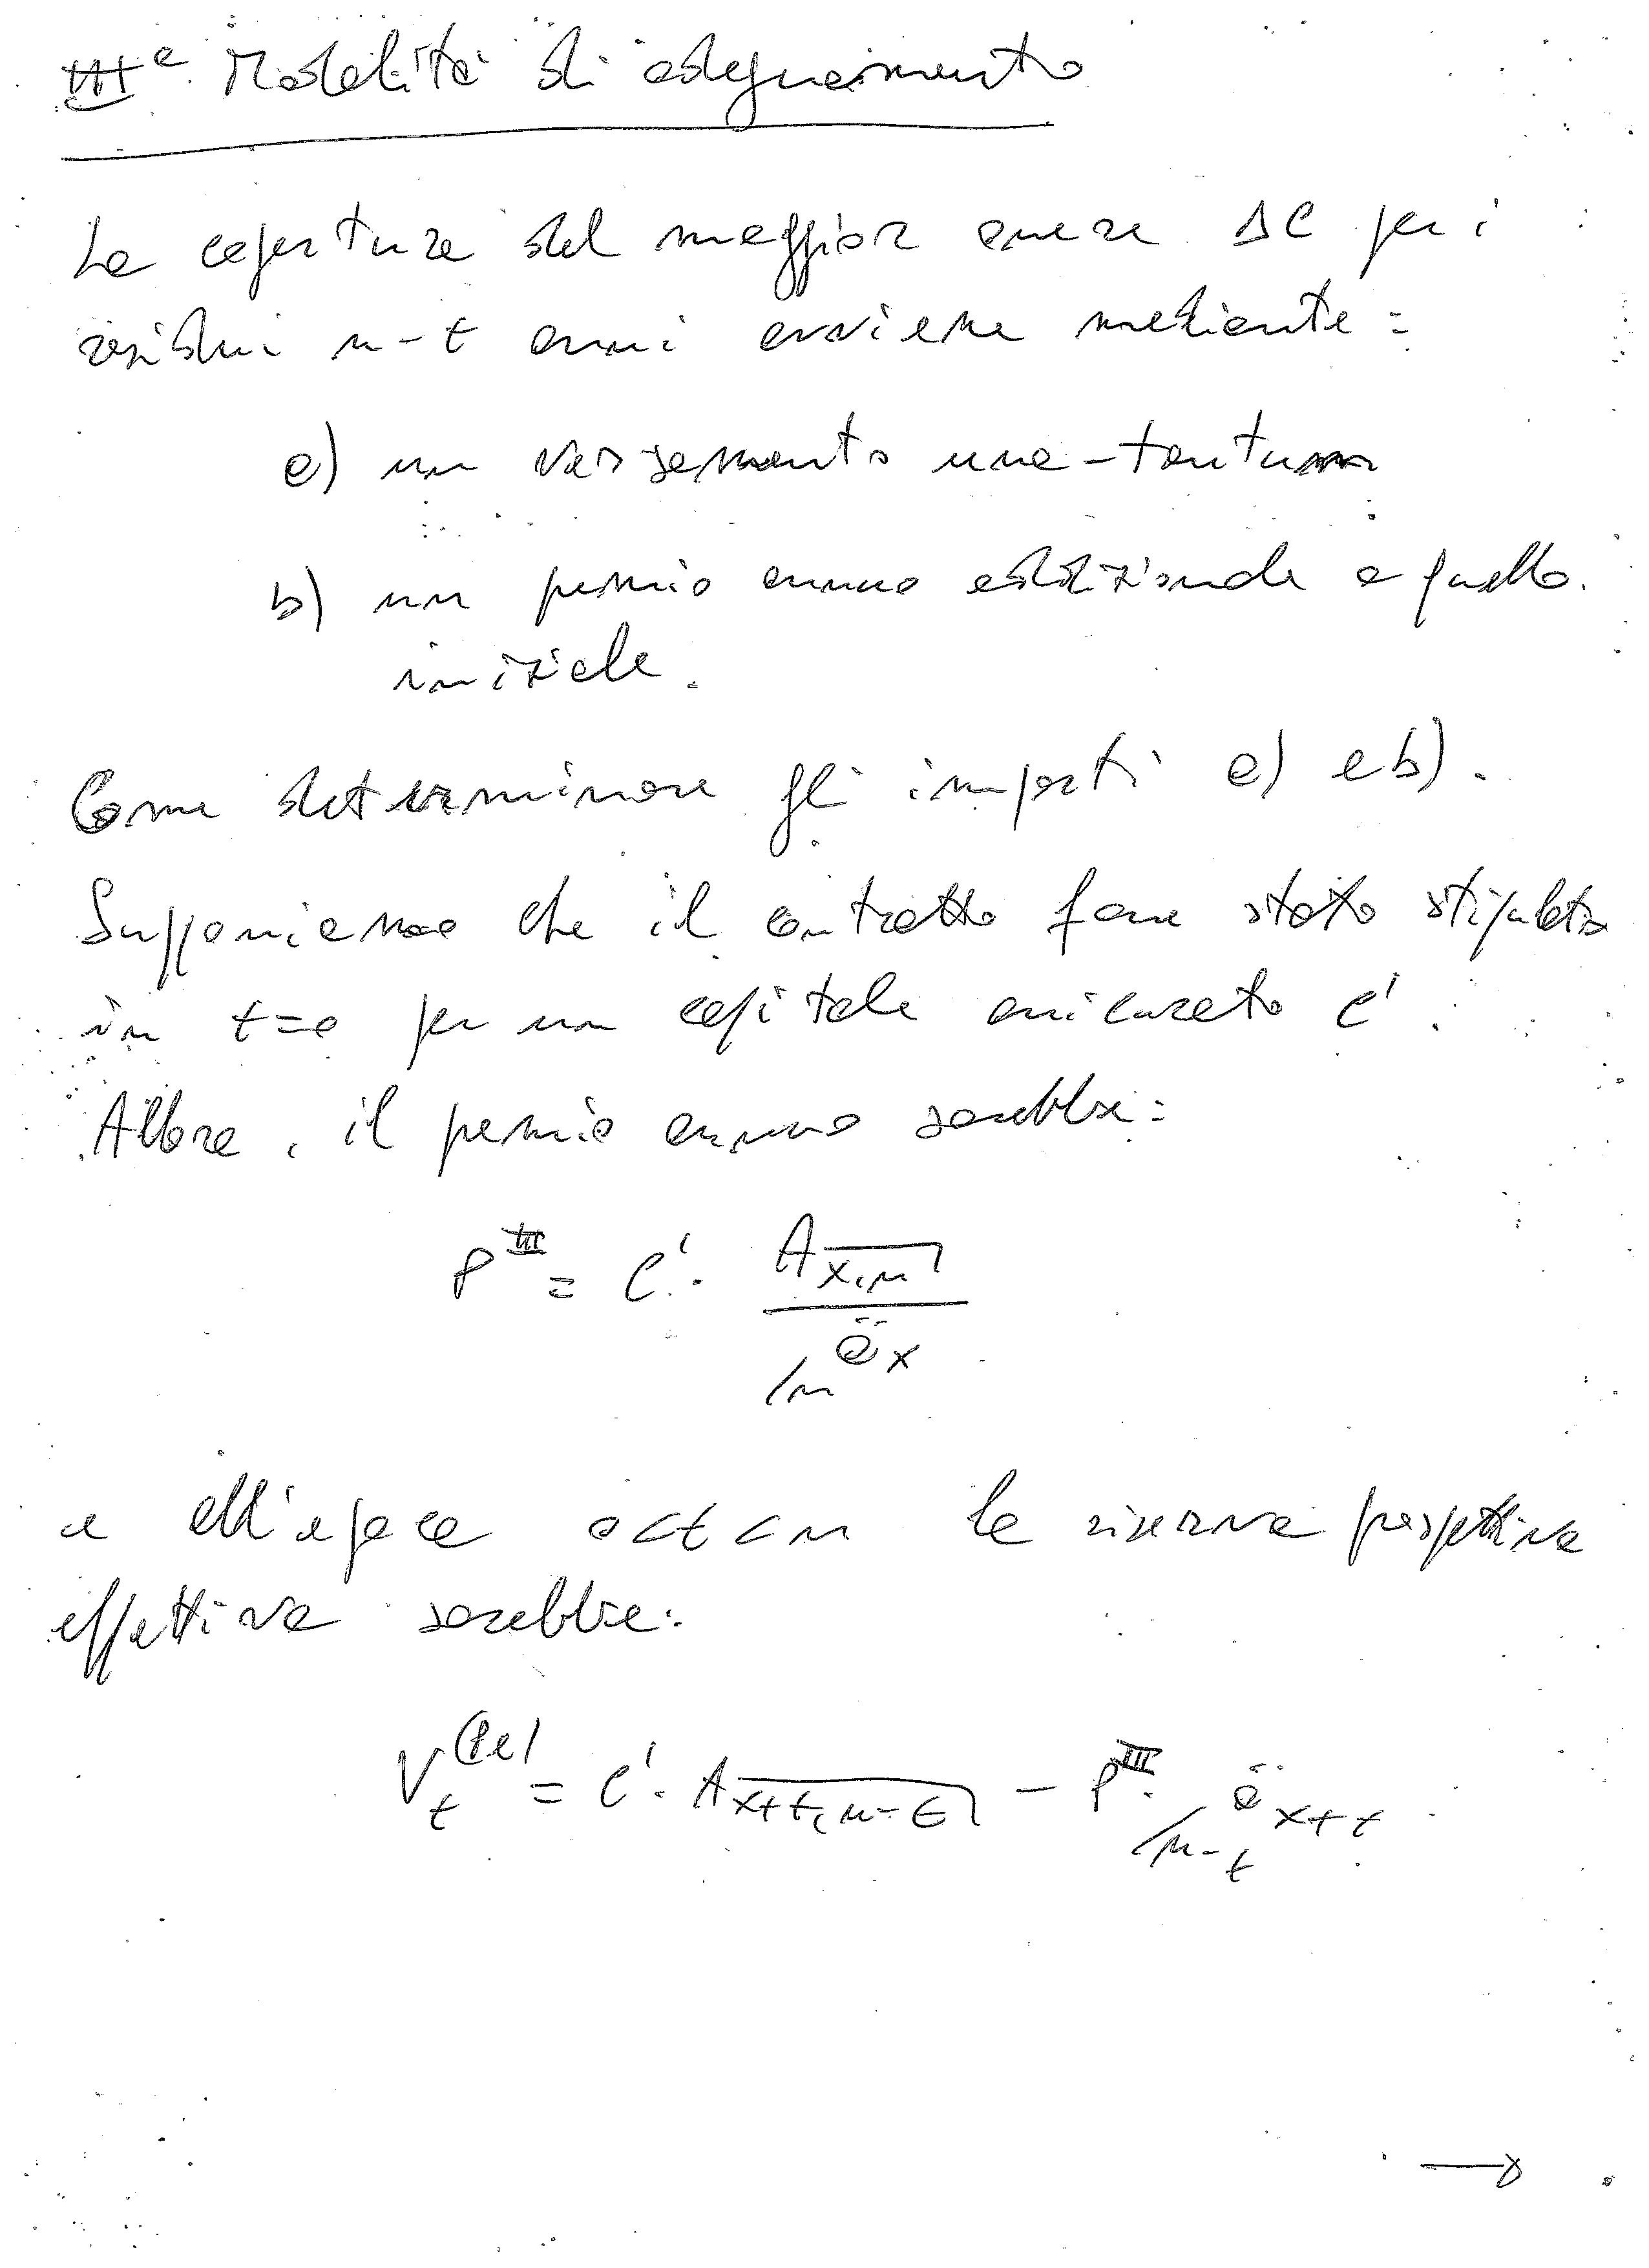 IIIª Modalità di adeguamento
La copertura del maggior onere ΔC per i
residui n-t anni avviene mediante:
a) un versamento una-tantum
b) un premio annuo addizionale a quello
iniziale.
Come determinare gli importi a) e b).
Supponiamo che il contratto fosse stato stipulato
in t=0 per un capitale assicurato C'.
Allora, il premio annuo sarebbe:
P^III = C' · A_{x,n⌉} / _{/n}ä_x
e all'epoca 0<t<n la riserva prospettiva
effettiva sarebbe:
V_t^{(Pe)} = C' · A_{x+t,n-t⌉} - P^III · _{/n-t}ä_{x+t}
→